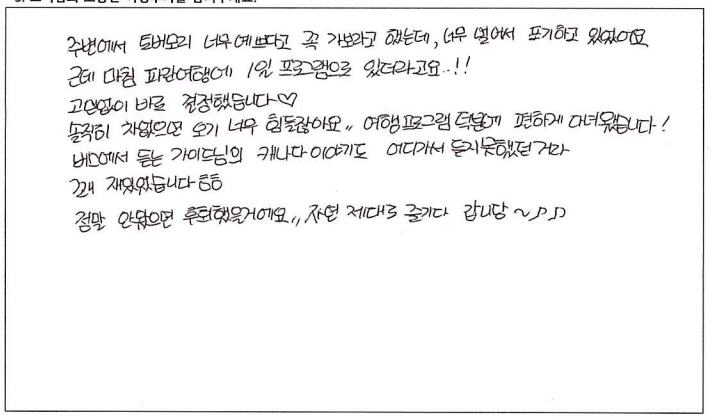 주변에서 토버모리 너무 예쁘다고 꼭 가보라고 했는데, 너무 멀어서 포기하고 있었어요
근데 마침 파란여행에 1일 프로그램으로 있더라고요..!!
고민없이 바로 결정했습니다♡
솔직히 차없으면 오기 너무 힘들잖아요,, 여행프로그램 덕분에 편하게 다녀왔습니다!
버스에서 듣는 가이드님의 캐나다이야기도 어디가서 듣지못했던거라
꽤 재밌었습니다ㅎㅎ
정말 안왔으면 후회했을거에요,, 자연 제대로 즐기다 갑니당~♪♪